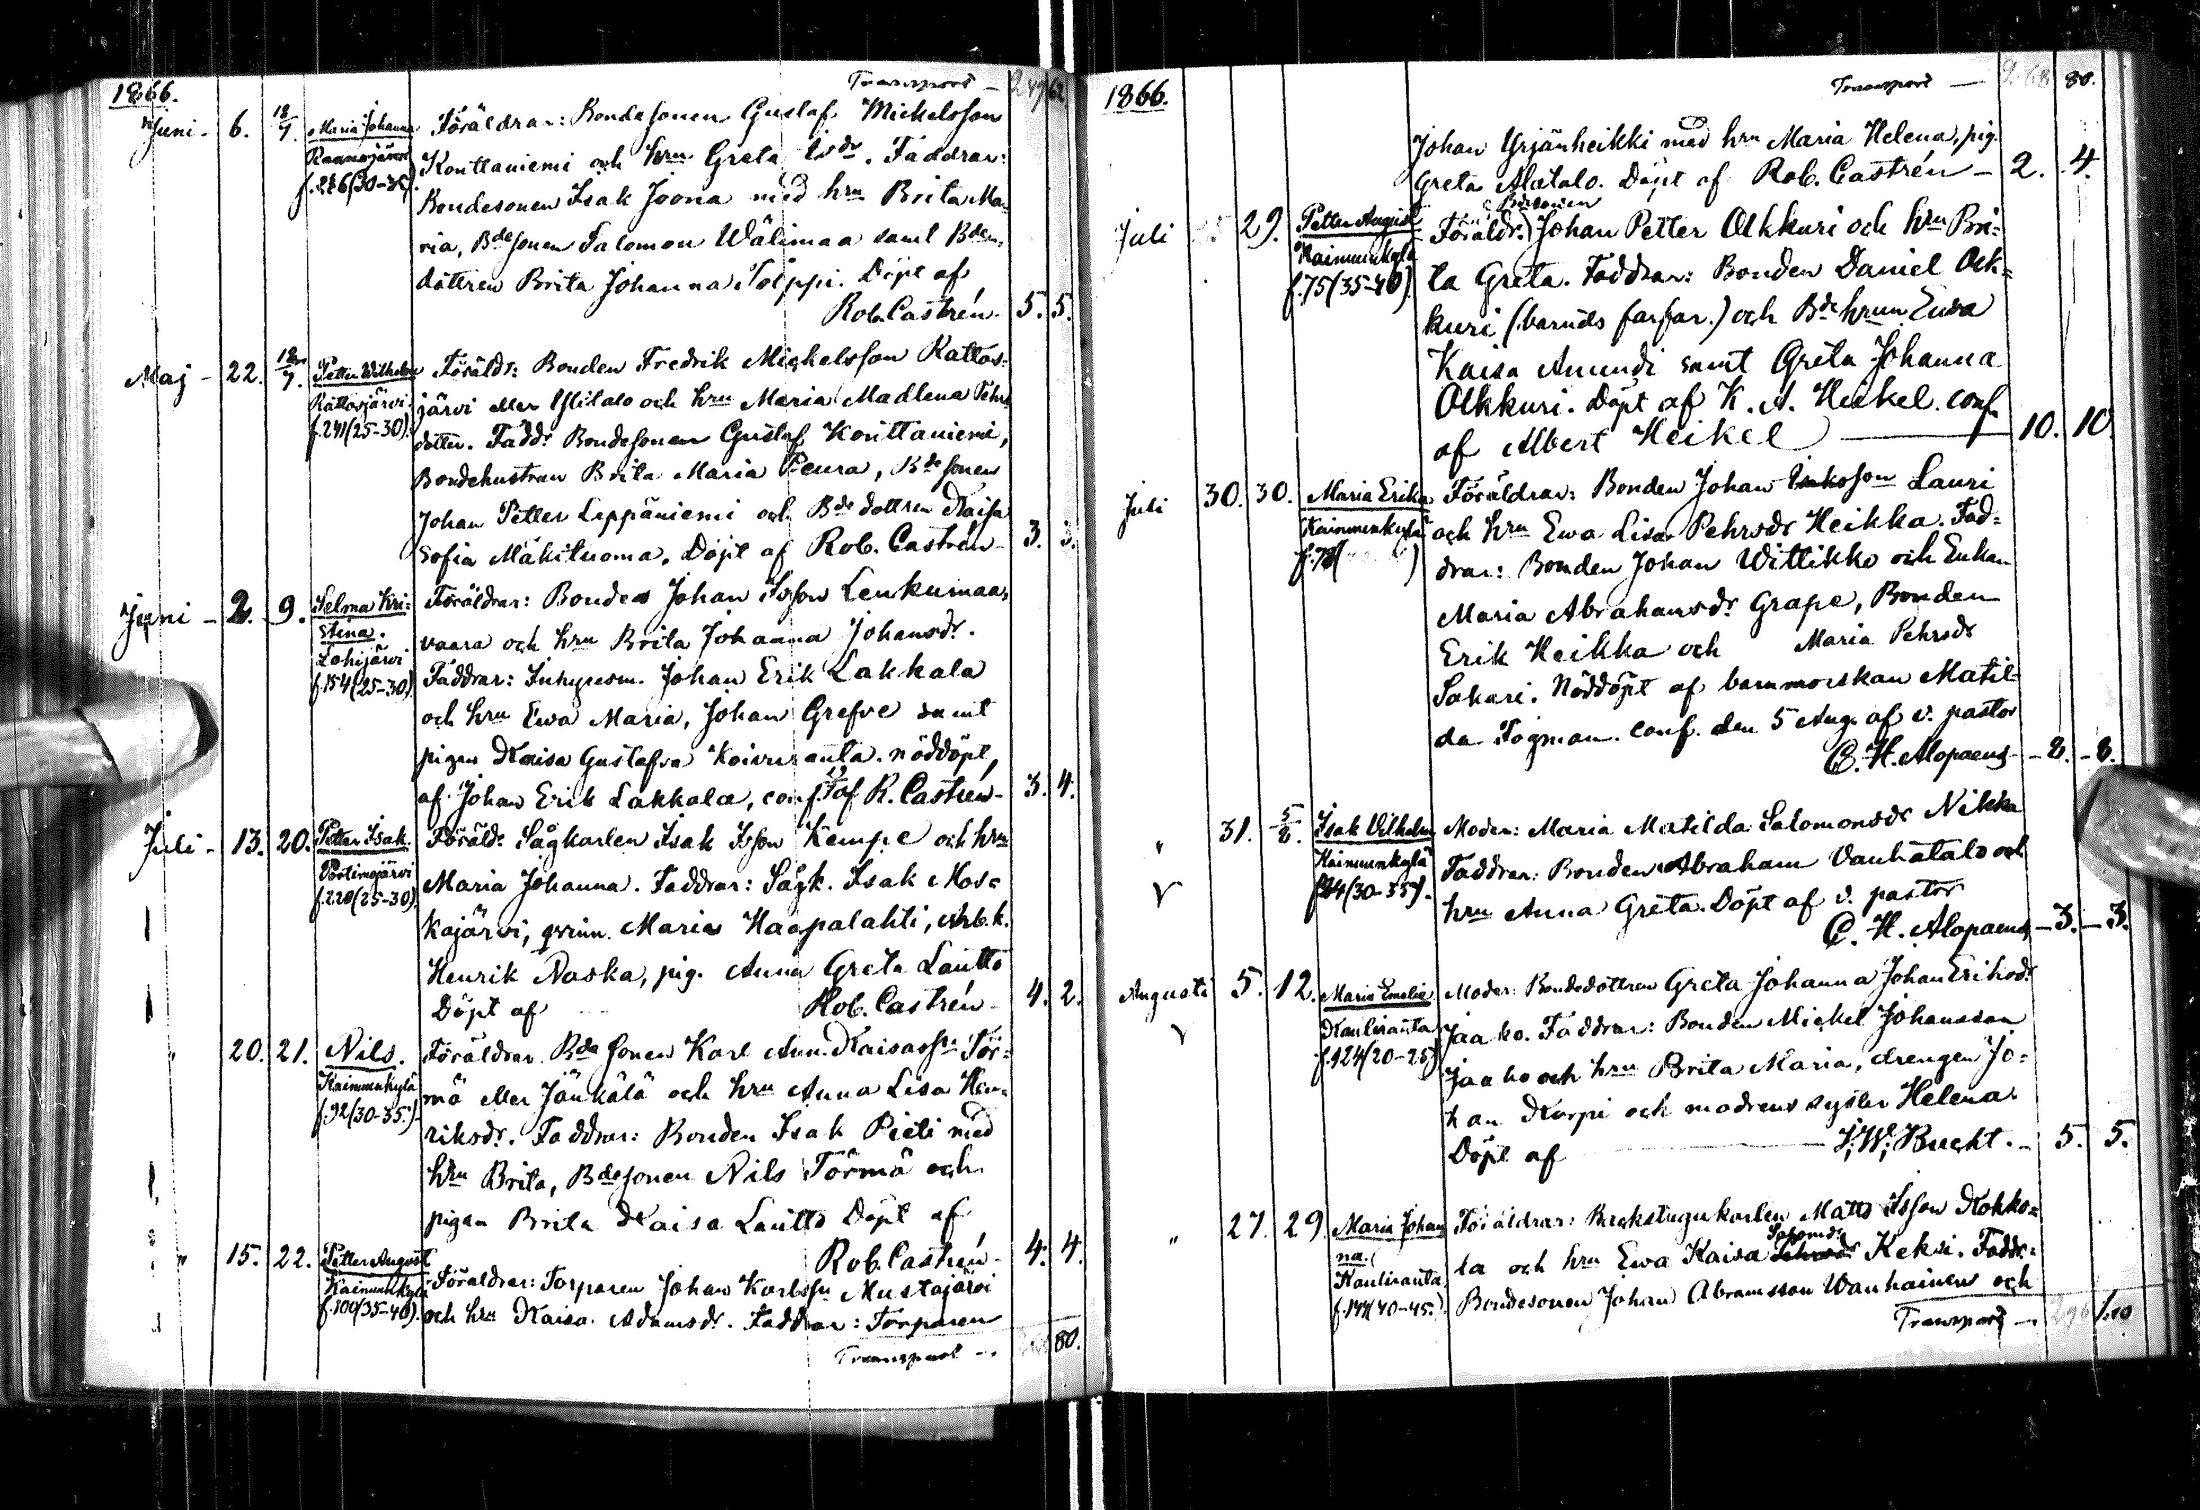 1866.
Transport — 249 62.
Juni - 6. 18/7. Maria Johanna Föräldrar: Bondesonen Gustaf Mickelsson
Raanujärvi Konttaniemi och hru Greta Isdr. Faddrar:
f. 286(30-35). Bondesonen Isak Joona med hru Brita Ma-
ria, Bdesonen Salomon Wälimaa samt Bden-
dottren Brita Johanna Tolppi. Döpt af
Rob. Castrén - 5. 5.
Maj - 22. 18/7. Petter Wilhelm Föräldr: Bonden Fredrik Mickelsson Rattos-
Rattosjärvi järvi eller Ylitalo och hru Maria Madlena Pehrs
f. 291(25-30). dotter. Faddr Bondesonen Gustaf Konttaniemi,
Bondehustrun Brita Maria Peura, Bdesonen
Johan Petter Leppäniemi och Bdedottren Kaisa
Sofia Mäkituoma. Döpt af Rob. Castrén - 3. 3.
Juni - 2. 9. Selma Kri- Föräldrar: Bonden Johan Isson Lenkumaa-
stina. vaara och hru Brita Johanna Johansdr.
Lohijärvi Faddrar: Inhysesm. Johan Erik Lakkala
f. 154(25-30) och hru Ewa Maria, Johan Grefve samt
pigan Kaisa Gustafva Koivuranta. nöddöpt,
af Johan Erik Lakkala, conf. af R. Castrén - 3. 4.
Juli - 13. 20. Petter Isak. Föräldr Sågkarlen Isak Isson Kempe och hru
Portimojärvi Maria Johanna. Faddrar: Sågk. Isak Mos-
f. 220(25-30) kajärvi, qvinn. Maria Haapalahti, Arb.k.
Henrik Naska, pig. Anna Greta Lautto
Döpt af Rob. Castrén - 4. 2.
" 20. 21. Nils. Föräldrar. Bdesonen Karl Ann. Kaisasson Tör-
Kainuunkylä mä eller Jänkälä och hru Anna Lisa Hen-
f. 92(30-35). riksdr. Faddrar: Bonden Isak Pieti med
hru Brita, Bdesonen Nils Törmä och
pigan Brita Kaisa Lautto Döpt af
Rob. Castrén - 4. 4.
" 15. 22. Petter August Föräldrar: Torparen Johan Karlsson Mustajärvi
Kainuunkylä
f. 100(35-40). och hru Kaisa Adamsdr. Faddrar: Torparen
Transport - 80.
1866.
Transport — 80.
Johan Yrjänheikki med hru Maria Helena, pig.
Greta Alatalo. Döpt af Rob. Castrén - 2. 4.
Bdesonen
Juli 29. Petter August Föräldr.) Johan Petter Olkkuri och hru Bri-
Kainuunkylä ta Greta. Faddrar: Bonden Daniel Olk-
f. 75(35-40). kuri (barnets farfar.) och Bdehrun Ewa
Kaisa Anundi samt Greta Johanna
Olkkuri. Döpt af K. A. Heikel. conf.
af Albert Heikel — 10. 10.
Juli 30. 30. Maria Erika Föräldrar: Bonden Johan Eriksson Lauri
Kainuunkylä och hru Ewa Lisa Pehrsdr Heikka. Fad-
f. 78( ) drar: Bonden Johan Wittikko och Enkan
Maria Abrahamsdr Grape, Bonden
Erik Heikka och Maria Pehrsdr
Sakari. Nöddöpt af barnmorskan Matil-
da Fogman. conf. den 5 Aug. af v. pastor
C. H. Alopaeus - 8. - 8.
" 31. 5/8. Isak Vilhelm Moder: Maria Matilda Salomonsdr Nikka
Kainuunkylä Faddrar: Bonden Abraham Vanhatalo och
f. 94(30-35). hru Anna Greta. Döpt af v. pastor
C. H. Alopaeus - 3. - 3.
Augusti 5. 12. Maria Emelie Moder: Bondedottren Greta Johanna Johan Eriksdr
Kauliranta Jaako. Faddrar: Bonden Mickel Johansson
f. 124(20-25) Jaako och hru Brita Maria, drengen Jo-
han Korpi och modrens syster Helena.
Döpt af — J. W. Bucht. - 5. 5.
" 27. 29. Maria Johan Föräldrar: Backstugukarlen Matts Isson Kokko-
na. Salomdr
Kauliranta la och hru Ewa Kaisa Keksi. Faddr:
f. 144(40-45.) Bondesonen Johan Abramsson Wanhainen och
Transport -